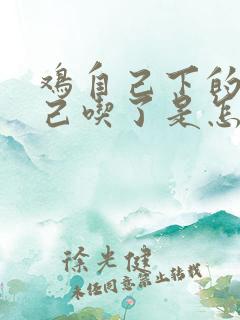 鸡自己下的
己喫了是怎
徐光健
未经同意禁止转载